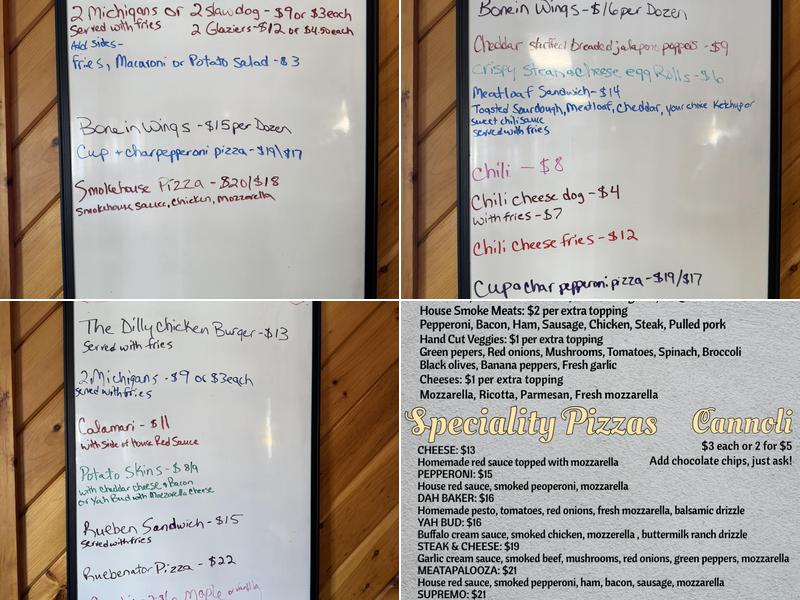 2 Michigans or 2 slaw dog - $9 or $3 each
Served with fries
2 Glaziers - $12 or $4.50 each
Add sides -
Fries, Macaroni or Potato Salad - $3
Bone in Wings - $15 per Dozen
Cup + char pepperoni pizza - $19/$17
Smokehouse Pizza - $20/$18
Smokehouse sauce, chicken, mozzarella
Bone in Wings - $16 per Dozen
Cheddar stuffed breaded jalapeno poppers - $9
Crispy Steak & Cheese egg Rolls - $16
Meatloaf Sandwich - $14
Toasted Sourdough, Meatloaf, Cheddar, your choice Ketchup or
sweet chili sauce
served with fries
Chili - $8
Chili cheese dog - $4
with fries - $7
Chili cheese fries - $12
Cup & char pepperoni pizza - $19/$17
The Dilly Chicken Burger - $13
Served with fries
2 Michigans - $9 or $3 each
served with fries
Calamari - $11
with side of House Red Sauce
Potato Skins - $8/9
with cheddar cheese & Bacon
or Yah Bud with Mozzarella Cheese
Rueben Sandwich - $15
served with fries
Ruebenator Pizza - $22
Maple or vanilla
House Smoke Meats: $2 per extra topping
Pepperoni, Bacon, Ham, Sausage, Chicken, Steak, Pulled pork
Hand Cut Veggies: $1 per extra topping
Green pepers, Red onions, Mushrooms, Tomatoes, Spinach, Broccoli
Black olives, Banana peppers, Fresh garlic
Cheeses: $1 per extra topping
Mozzarella, Ricotta, Parmesan, Fresh mozzarella
Speciality Pizzas
Cannoli
$3 each or 2 for $5
Add chocolate chips, just ask!
CHEESE: $13
Homemade red sauce topped with mozzarella
PEPPERONI: $15
House red sauce, smoked peoperoni, mozzarella
DAH BAKER: $16
Homemade pesto, tomatoes, red onions, fresh mozzarella, balsamic drizzle
YAH BUD: $16
Buffalo cream sauce, smoked chicken, mozzerella , buttermilk ranch drizzle
STEAK & CHEESE: $19
Garlic cream sauce, smoked beef, mushrooms, red onions, green peppers, mozzarella
MEATAPALOOZA: $21
House red sauce, smoked pepperoni, ham, bacon, sausage, mozzarella
SUPREMO: $21